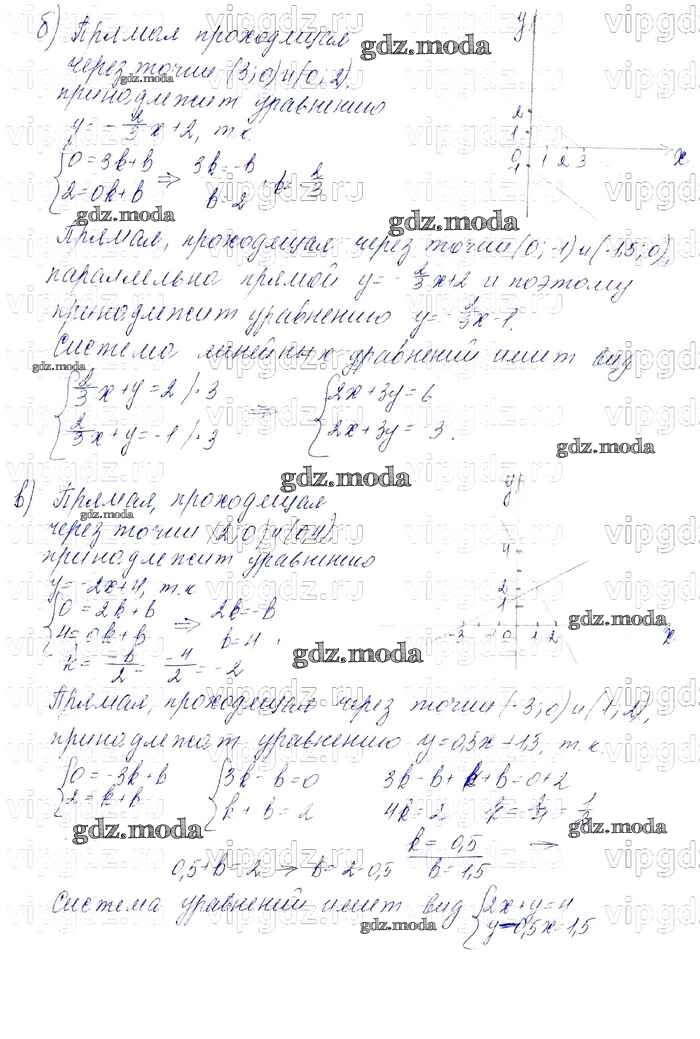 б) Прямая проходящая
через точки (3;0) и (0;2)
принадлежит уравнению
y = -2/3x+2, т.к.
{0=3k+b ⇒ 3k=-b
{2=0k+b b=2
Прямая, проходящая через точки (0;-1) и (-1,5;0),
параллельна прямой y = -2/3x+2 и поэтому
принадлежит уравнению y=-2/3x-1.
Система линейных уравнений имеет вид
{2/3x+y=2 /·3 ⇒ {2x+3y=6
{2/3x+y=-1 /·3 {2x+3y=-3.
y
2
1
0 1 2 3 x
-1
в) Прямая, проходящая
через точки (2;0) и (0;4)
принадлежит уравнению
y=-2x+4, т.к
{0=2k+b ⇒ 2k=-b
{4=0k+b b=4
k = -b/2 = -4/2 = -2
y
4
2
1
-3 0 1 2 x
Прямая, проходящая через точки (-3;0) и (1;2),
принадлежат уравнению y=0,5x+1,5, т.к.
{0=-3k+b {3k-b=0 3k-b+k+b=0+2
{2=k+b {k+b=2 4k=2
k=0,5
0,5+b=2 → b=2-0,5 b=1,5
Система уравнений имеет вид {2x+y=4
{y-0,5x=1,5
gdz.moda
vipgdz.ru